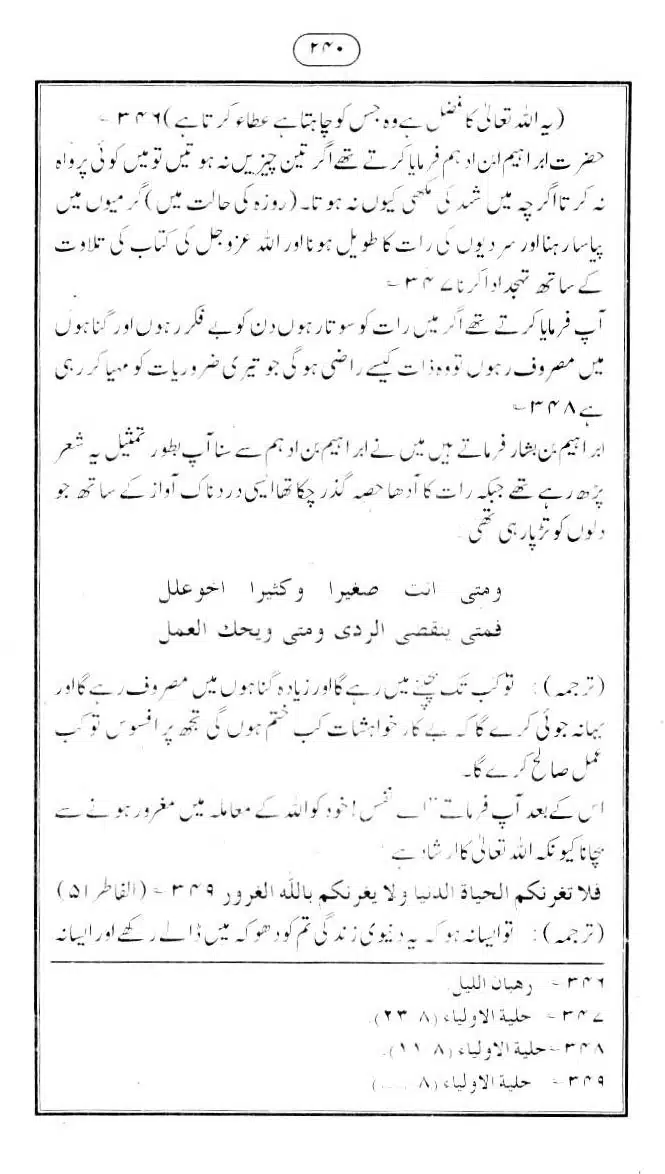 ۲۴۰
(یہ اللہ تعالیٰ کا فضل ہے وہ جس کو چاہتا ہے عطاء کرتا ہے) ۳۴۶ ؎
حضرت ابراہیم ابن ادہم فرمایا کرتے تھے اگر تین چیزیں نہ ہوتیں تو میں کوئی پرواہ
نہ کرتا اگرچہ میں شہد کی مکھی کیوں نہ ہوتا۔ (روزہ کی حالت میں) گرمیوں میں
پیاسا رہنا اور سردیوں کی رات کا طویل ہونا اور اللہ عزوجل کی کتاب کی تلاوت
کے ساتھ تہجد ادا کرنا ۳۴۷ ؎
آپ فرمایا کرتے تھے اگر میں رات کو سوتا رہوں دن کو بے فکر رہوں اور گناہوں
میں مصروف رہوں تو وہ ذات کیسے راضی ہو گی جو تیری ضروریات کو مہیا کر رہی
ہے ۳۴۸ ؎
ابراہیم بن بشار فرماتے ہیں میں نے ابراہیم بن ادہم سے سنا آپ بطور تمثیل یہ شعر
پڑھ رہے تھے جبکہ رات کا آدھا حصہ گذر چکا تھا ایسی دردناک آواز کے ساتھ جو
دلوں کو تڑپا رہی تھی
ومتی انت صغیرا وکثیرا اخوعلل
فمتی ینقصی الردی ومتی ویحک العمل
(ترجمہ): تو کب تک بچپنے میں رہے گا اور زیادہ گناہوں میں مصروف رہے گا اور
بہانہ جوئی کرے گا کہ بے کار خواہشات کب ختم ہوں گی تجھ پر افسوس تو کب
عمل صالح کرے گا۔
اس کے بعد آپ فرماتے "اے نفس! خود کو اللہ کے معاملہ میں مغرور ہونے سے
بچانا کیونکہ اللہ تعالیٰ کا ارشاد ہے
فلا تغرنکم الحیاة الدنیا ولا یغرنکم بالله الغرور ۳۴۹ ؎ (الفاطر ۵۱)
(ترجمہ): تو ایسا نہ ہو کہ یہ دنیوی زندگی تم کو دھوکہ میں ڈالے رکھے اور ایسا نہ
۳۴۶ ؎ رهبان اللیل.
۳۴۷ ؎ حلیة الاولیاء (۸ ۲۳).
۳۴۸ ؎ حلیة الاولیاء (۸ ۱۱).
۳۴۹ ؎ حلیة الاولیاء (۸ ......)